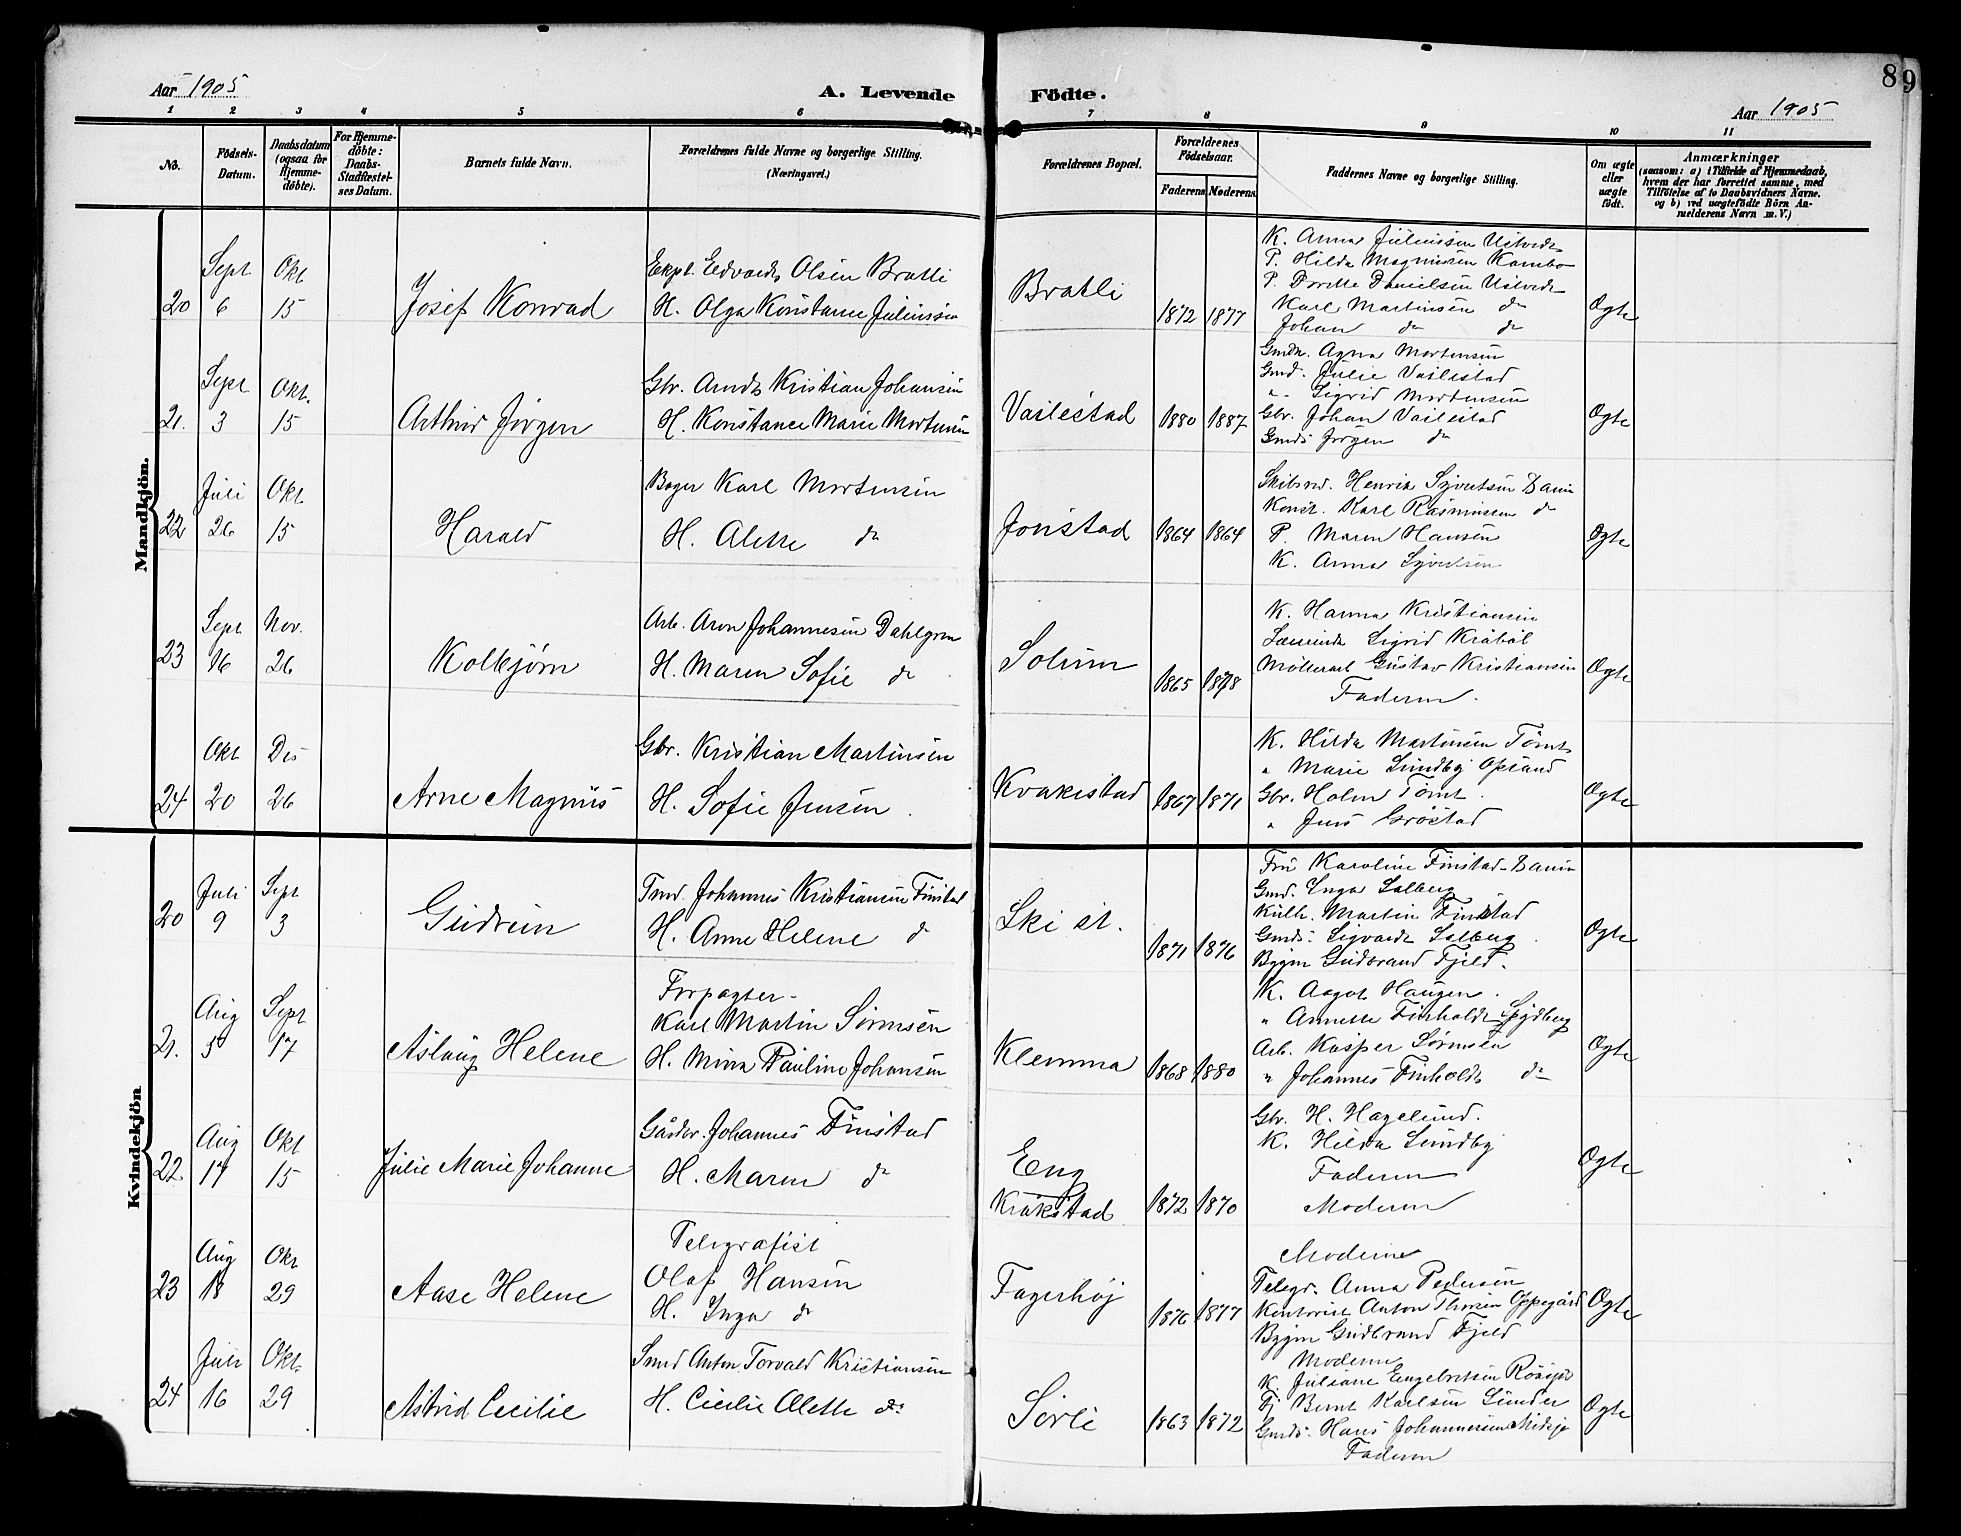 Aar 1905
A. Levende Födte.
89
Aar 1905
1 2 3 4 5 6 7 8 9 10 11
No.
Födsels-Datum.
Daabsdatum (ogsaa for Hjemme-döbte).
For Hjemme-döbte: Daabs-Stadfæstel-ses Datum.
Barnets fulde Navn.
Forældrenes fulde Navne og borgerlige Stilling.
(Næringsvei.)
Forældrenes Bopæl.
Forældrenes Födselsaar.
Faderens Moderens
Faddernes Navne og borgerlige Stilling.
Om ægte eller uægte födt.
Anmærkninger
(saasom: a) i Tilfælde af Hjemmedaab, hvem der har forrettet samme, med Tilföielse af to Daabsvidners Navne. og b) ved uægtefödte Börn An-melderens Navn m. V.)
Mandkjön.
20 Sept 6 Okt 15
Josef Konrad
Edvard Olsen Bratli
H. Olga Konstanse Juliussen
Bratli
1872 1877
K. Anna Juliussen
P. Hilda Magnussen Kambo
P. Dorette Danielsen
Karl Martinsen do
Johan do do
Ægte
21. Sept 3 Okt. 15
Arthur Jörgen
Gbr. Arndt Kristian Johansen
H. Konstance Marie Mortensen
Vasilestad
1880 1887
Agna Mortensen
Gmd. Julie Vasilestad
" Sigrid Mortensen
Gbr. Johan Vasilestad
Gmds Jörgen do
Ægte
22 Juli 26 Okt. 15
Harald
Bager Karl Mortensen
H. Alette do
Jonstad
1864 1864
Skibsred. Henrik Syvertsen
Karl Rasmussen do
P. Maren Hansen
K. Anna Syvertsen
Ægte
23 Sept 16 Nov. 26
Kolbjörn
Arb. Aron Johannesen Dahlgren
H. Maren Sofie do
Solum
1865 1878
K. Hanna Kristiansen
Sigrid Kråböl
Gustav Kristiansen
Faderen.
Ægte
24 Okt 20 Des 26
Arne Magnus
Gbr. Kristian Martinsen
H. Sofie Jensen.
Kvakestad
1867 1871
K. Hilda Martinsen Tömt
" Marie Lundby Opsand
Gbr. Holm Tömt.
" Jens Gröstad
Ægte
Kvindekjön
20 Juli 9 Sept 3
Gudrun
Johannes Kristiansen Finstad
H. Anne Helene do
Ski st.
1871 1876
Fru Karoline Finstad
Gmd. Inga Solberg
Martin Finstad
Gmds. Sigvardt Solberg.
Bygm Gudbrand Fjeld.
Ægte
21. Aug 5 Sept 17
Aslaug Helene
Forpagter
Karl Martin Sörensen
H. Mina Pauline Johansen
Klemma
1868 1880
K. Aagot Haugen.
" Annette Finholdt Spydberg
Arb. Kasper Sörensen
" Johannes Finholdt do
Ægte
22. Aug 17 Okt 15
Julie Marie Johanne
Gårdbr. Johannes Finstad
H. Maren do
Eng
Kråkstad
1872 1870
Gbr. H. Hagelund.
K. Hilda Lundby
Faderen
Moderen
Ægte
23 Aug 18 Okt 29
Aase Helene
Telegrafist
Olaf Hansen
H. Inga do
Fagerhöj
1876 1877
Moderen
Telegr. Anna Pedersen
Kontorist Anton Thoresen Oppegård
Bygm Gudbrand Fjeld
Ægte
24 Juli 16 Okt. 29
Astrid Cecilie
Smed Anton Torvald Kristiansen
H. Cecilie Alette do
Sörli
1863 1872
Moderen
K. Juliane Engebretsen
Tj Bernt Karlsen Sunder
Gmds. Hans Johannessen Midsjø
Faderen
Ægte